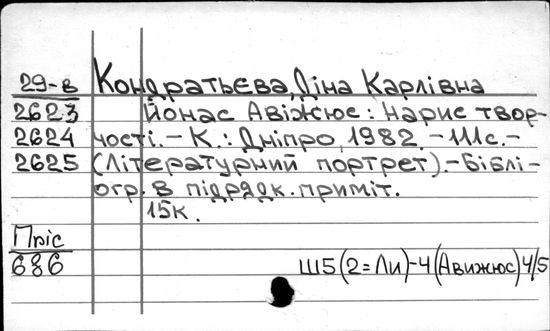 29-в Кондратьєва, Діна Карлівна
2623 Йонас Авіжюс: нарис твор-
2624 чості. - К.: Дніпро, 1982. - 111с. -
2625 (Літературний портрет). - Біблі-
огр. в підрядк. приміт.
15к.
Пліс
686 Ш5(2=Ли)-4(Авижюс)4/5